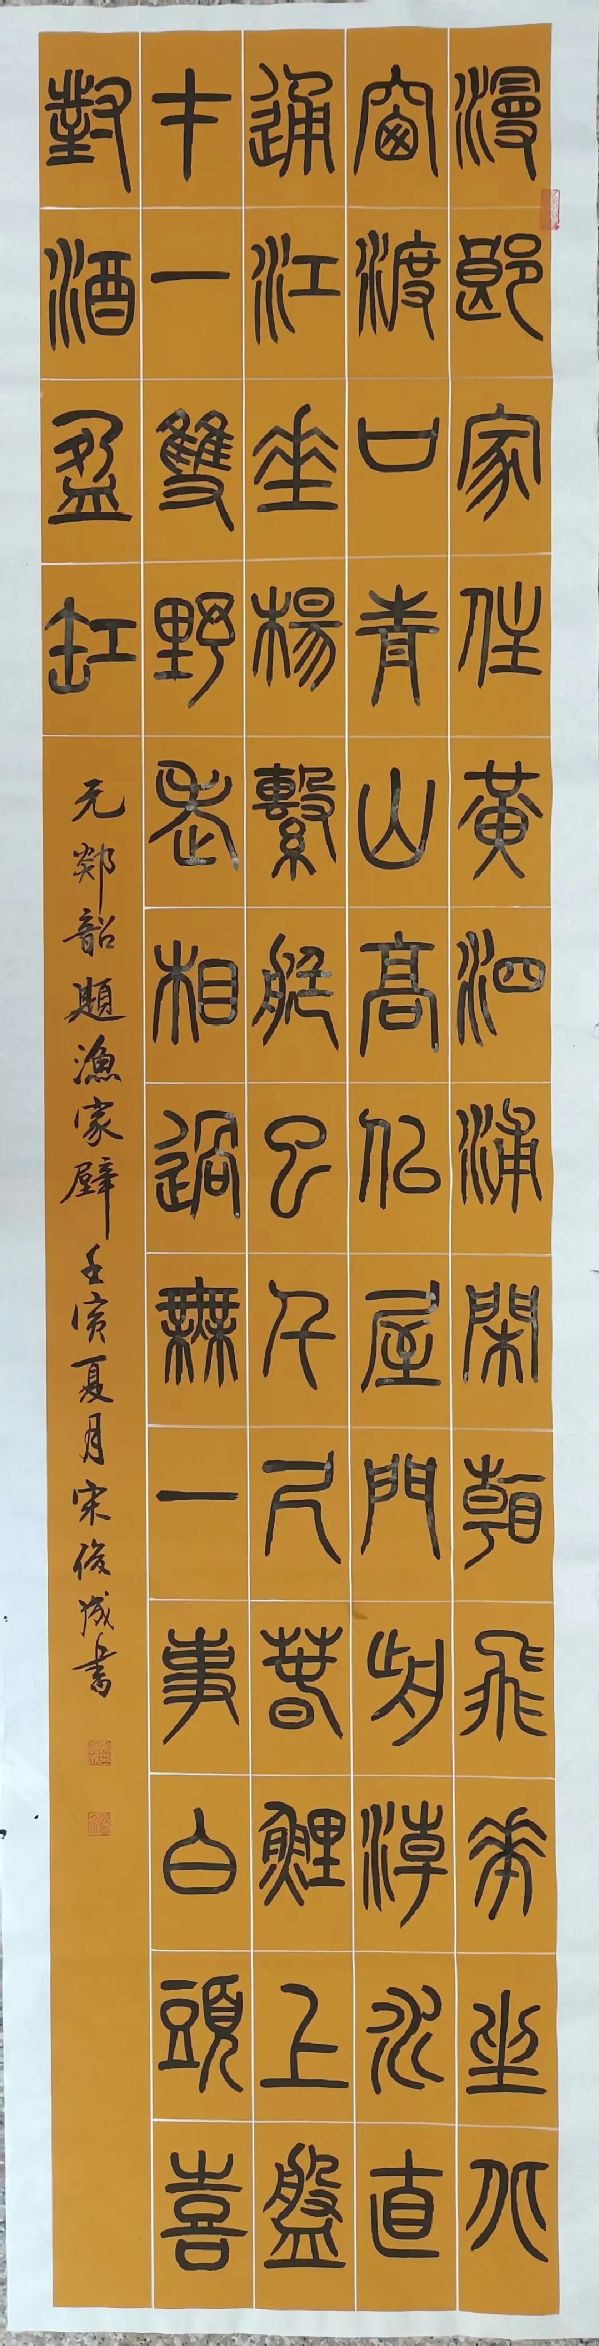 漫郎家住黃泗浦閑看飛花坐北
窗渡口青山高似屋門前潮水直
通江垂楊繫艇已千尺春鯉上盤
才一雙野老相過無一事白頭喜
對酒盈缸
元郯韶題漁家壁壬寅夏月宋俊成書